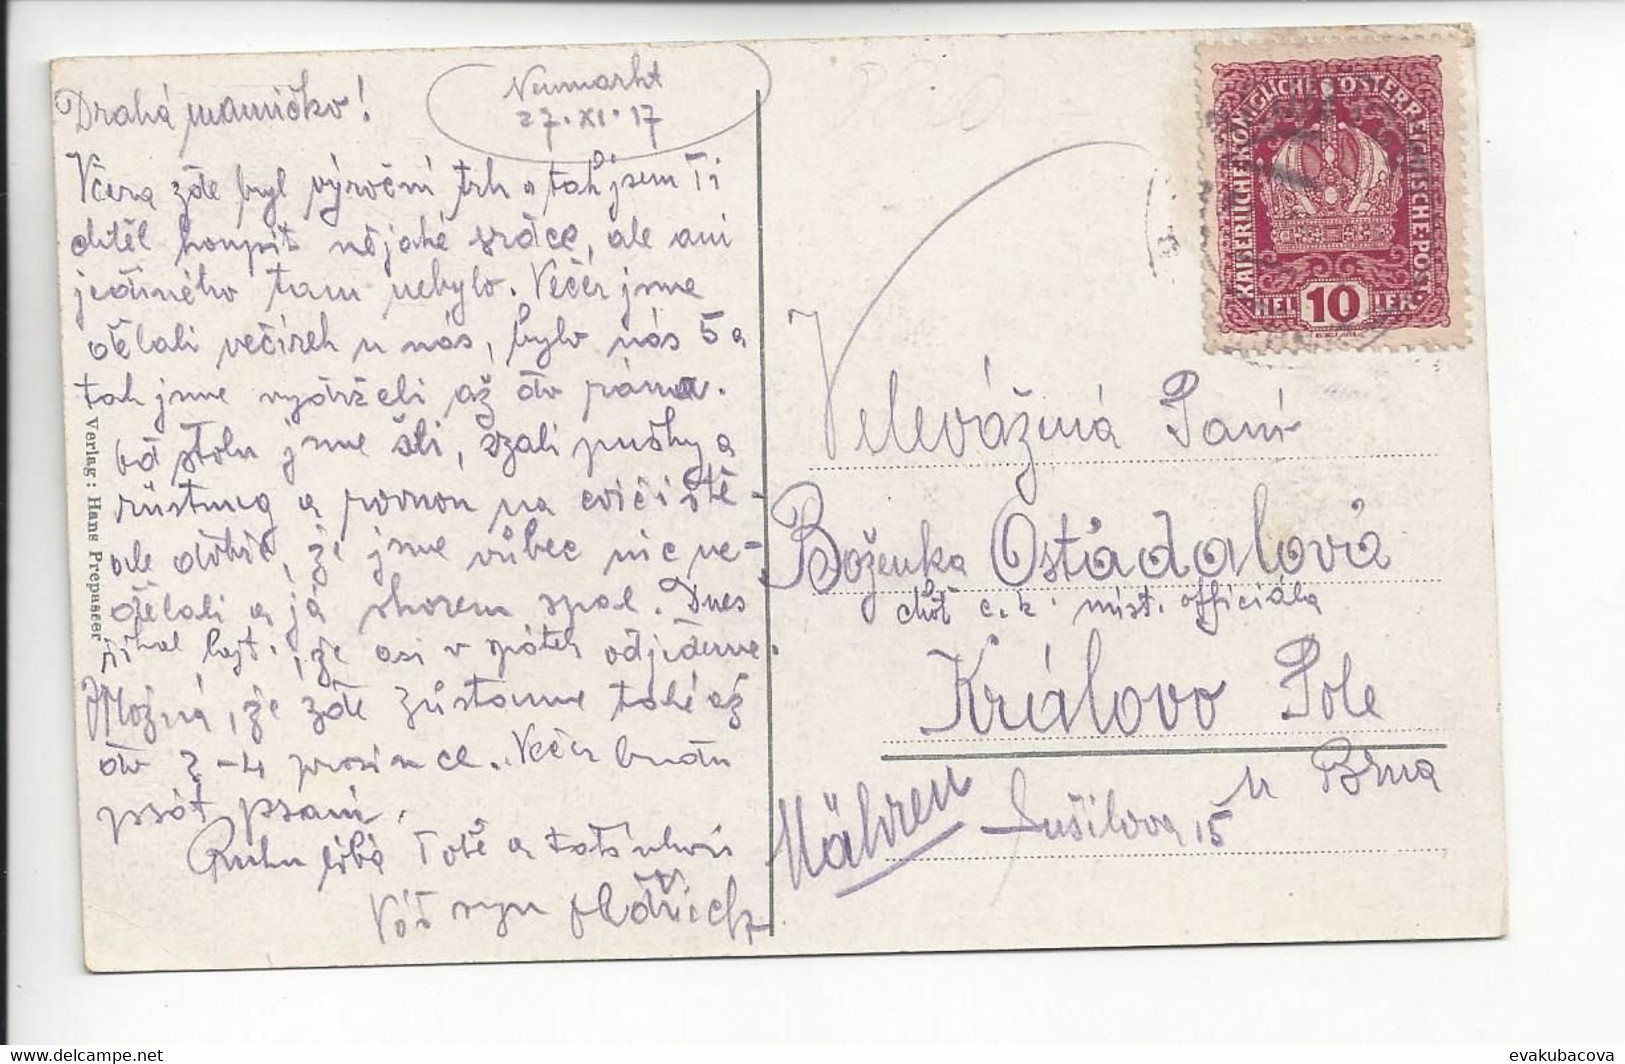 Drahá mamičko!
Neumarkt
27.XI.17
Včera zde byl výroční trh a tak jsem Ti
chtěl koupit nějaké srdce, ale ani
jediného tam nebylo. Večer jsme
dělali večírek u nás, bylo nás 5 a
tak jsme vydrželi až do rána.
Od stolu jsme šli, vzali pušky a
rüstung a rovnou na cvičiště
ale dobře, že jsme vůbec nic ne-
dělali a já skorem spal. Dnes
říkal lajt., že asi v pátek odjedeme.
Možná, že zde zůstanme také až
do 3-4 prosince. Večer budu
psát psaní.
Ruku líbá Tobě a tatínkovi
Váš syn Oldřich
Verlag: Hans Prepasser
KAISERLICHE KÖNIGLICHE ÖSTERREICHISCHE POST
HEL 10 LER
Velevážená Paní
Boženka Ostádalová
choť c.k. míst. officiála
Královo Pole
u Brna
Mähren
Sušilova 15
evakubacova